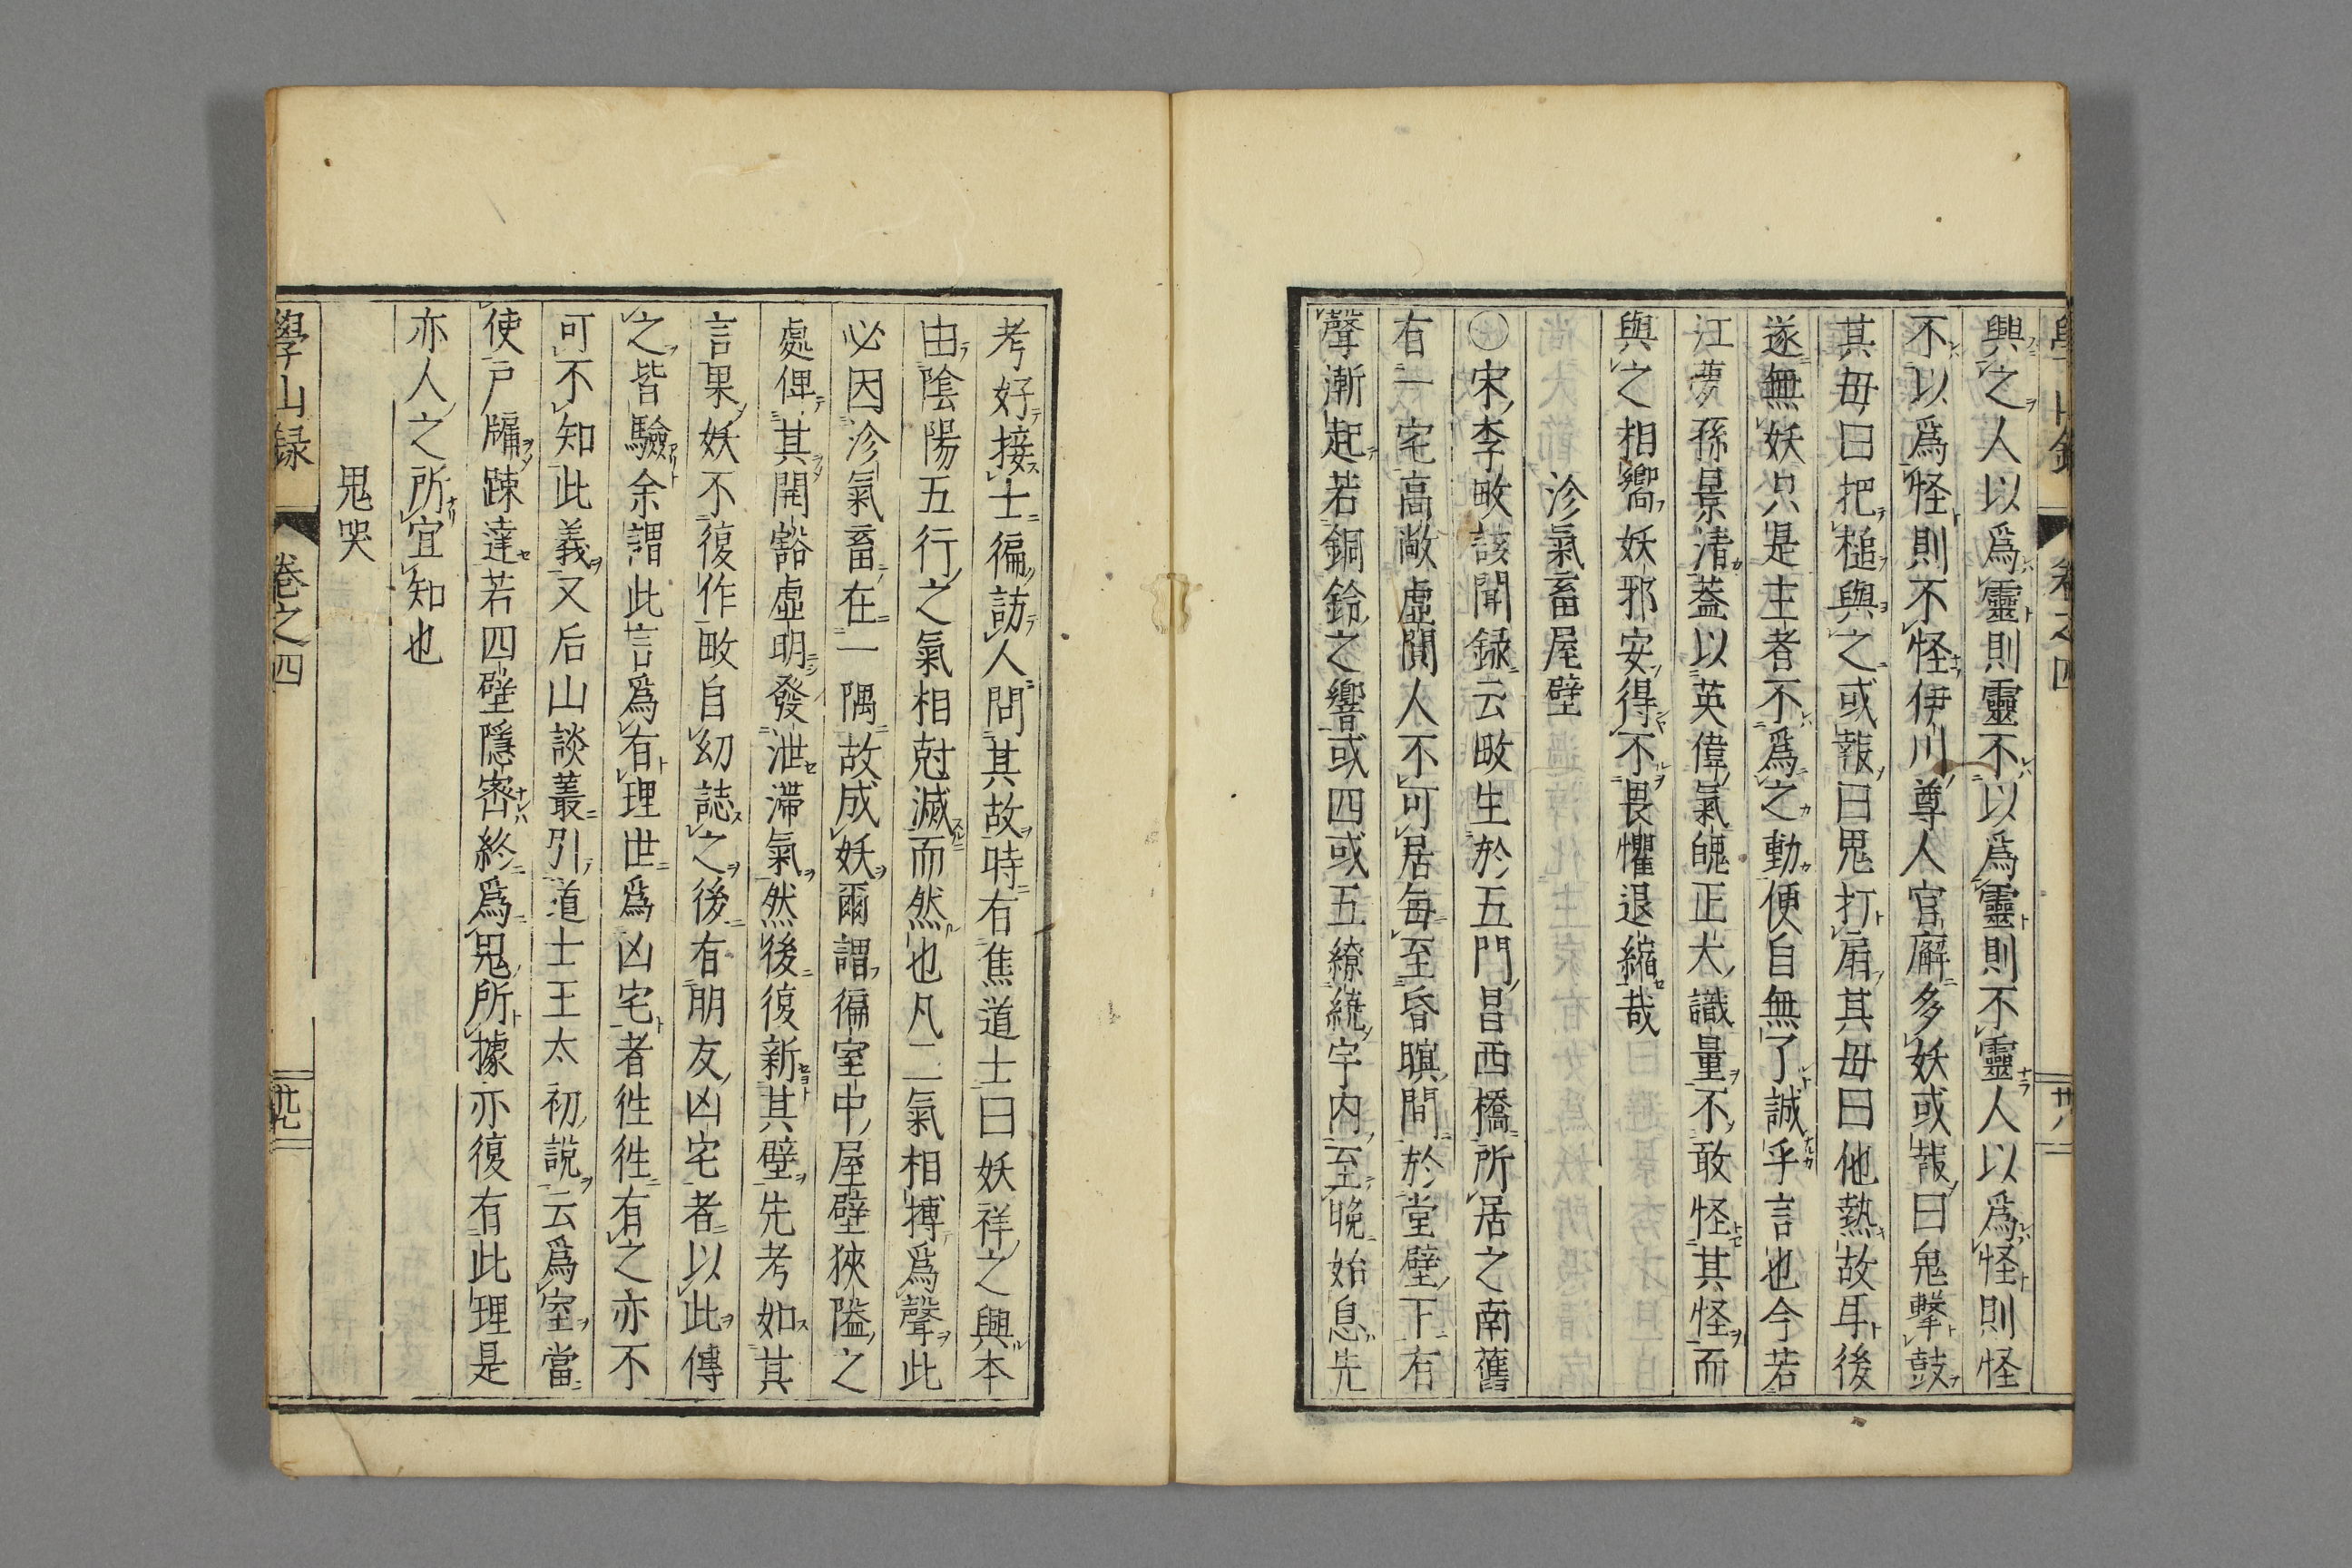 興之人以爲靈則靈不以爲靈則不靈人以爲怪則怪
不以爲怪則不怪伊川尊人官廨多妖或報曰鬼擊鼓
其母曰把槌與之或報曰鬼打扇其母曰他熱故耳後
遂無妖只是主者不爲之動便自無了誠乎言也今若
江夢孫景清蓋以英偉氣魄正大識量不敢怪其怪而
與之相嚮妖邪安得不畏懼退縮哉
沴氣畜屋壁
○宋李畋該聞録云畋生於五門昌西橋所居之南舊
有一宅高敞虛閴人不可居每至昏暝間於堂壁下有
聲漸起若銅鈴之響或四或五繚繞宇内至晚始息先
考好接士徧訪人問其故時有焦道士曰妖祥之興本
由陰陽五行之氣相尅滅而然也凡二氣相搏爲聲此
必因沴氣畜在一隅故成妖爾謂徧室中屋壁狹隘之
處俾其開豁虛明發泄滯氣然後復新其壁先考如其
言果妖不復作畋自幼誌之後有朋友凶宅者以此傳
之皆驗余謂此言爲有理世爲凶宅者徃徃有之亦不
可不知此義又后山談叢引道士王太初說云爲室當
使戸牖踈達若四壁隱密終爲鬼所據亦復有此理是
亦人之所宜知也
鬼哭
學山録
卷之四
廿九